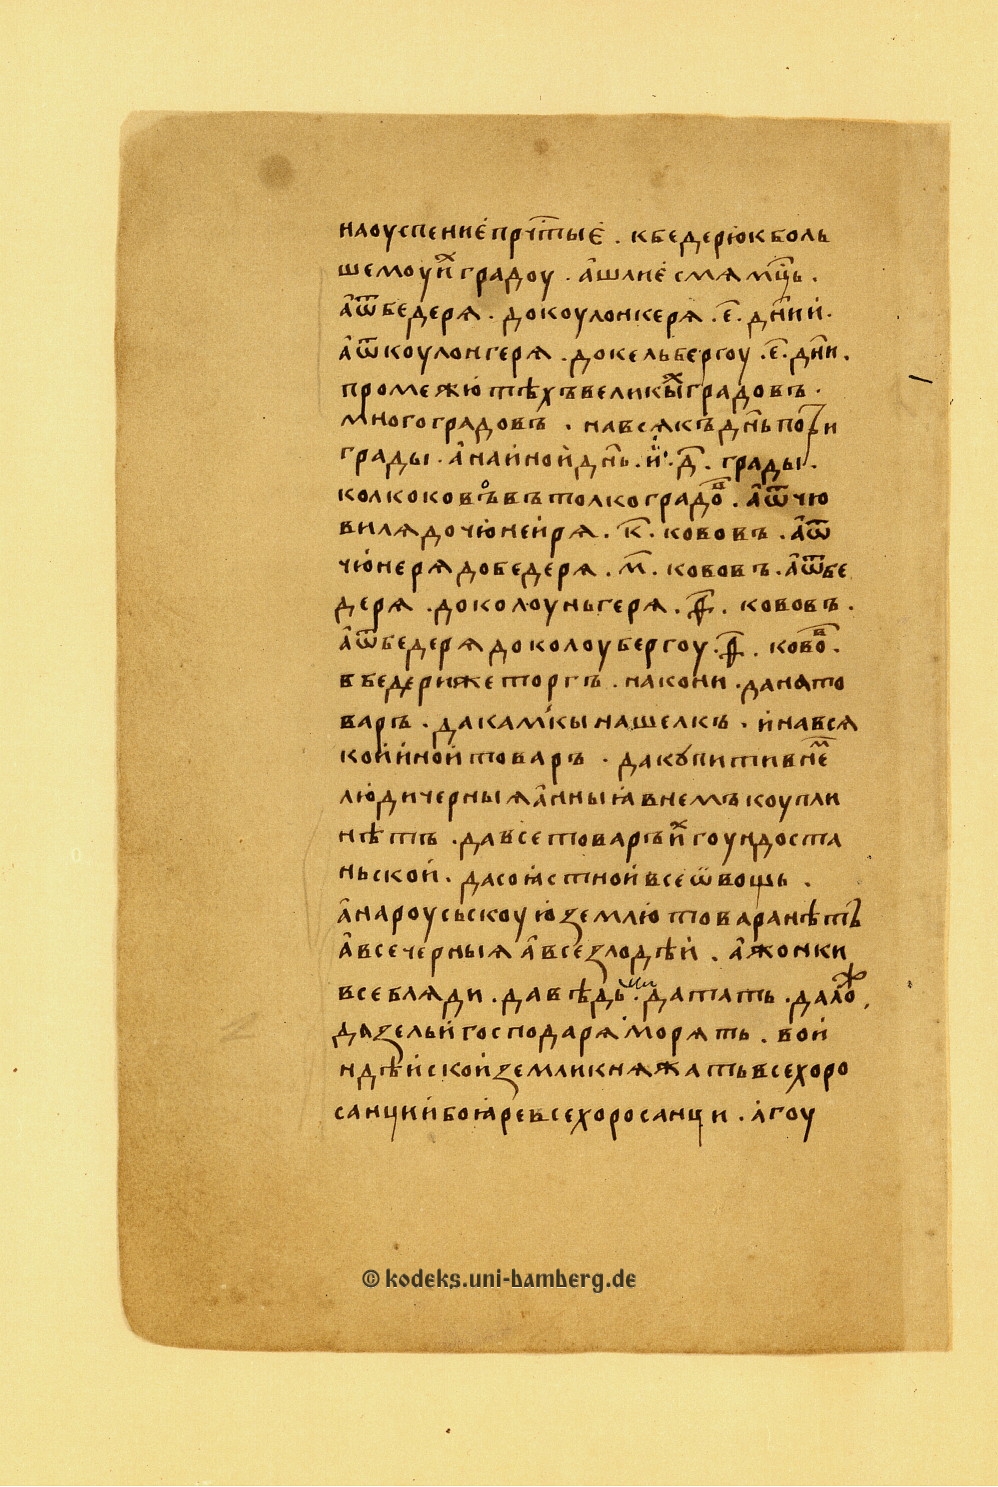 наоуспение прч҃тыꙗ є . кбедерю кболь
шемоу ихⷯ градоу . а̑шлиѐ смя мц҃ь .
а̑ѿбедеря . докоулонкеря . е҃ . дн҃ии .
а̑ѿкоулонгеря . докельбергоу . е҃ . дн҃и .
промежю тѣхъ великыⷯ градовъ .
многоградовъ . навсякъ дн҃ь пог҃и
грады . а̑ наиной дн҃ь . и . д҃ . грады .
колко ковⷪъ въ толко градоⷡ . а̑ѿ чю
виля до чюнейря . к҃ . кововъ . а̑ѿ
чюнеря добедеря . м҃ . кововъ . а̑ѿбе
деря . доколоуньгеря . ҂ . кововъ .
а̑ѿбедеря доколоубергоу . ҂ . ковоⷡ .
в бедери же торгъ . накони . данято
варъ . дакамкы нашелкъ . и нався
кой иной товаръ . дакꙋпити в неⷨ
людичерныя а̑нныꙗ внемъ коупли
нѣтъ . давсе товаръ иⷯ гоундоста
ньской . дасоꙗстной все ѿвощь .
а̑нароусьскоую землю товаранѣтъ
а̑все черныя а̑все злодѣи . а̑жонки
все бляди . давѣдь . датать . далоⷤ ,
дазельи господаря морять . вои
ндѣйской земли княжать все хоро
санции и боꙗре все хоросанци . а̑гоу
© kodeks.uni-bamberg.de